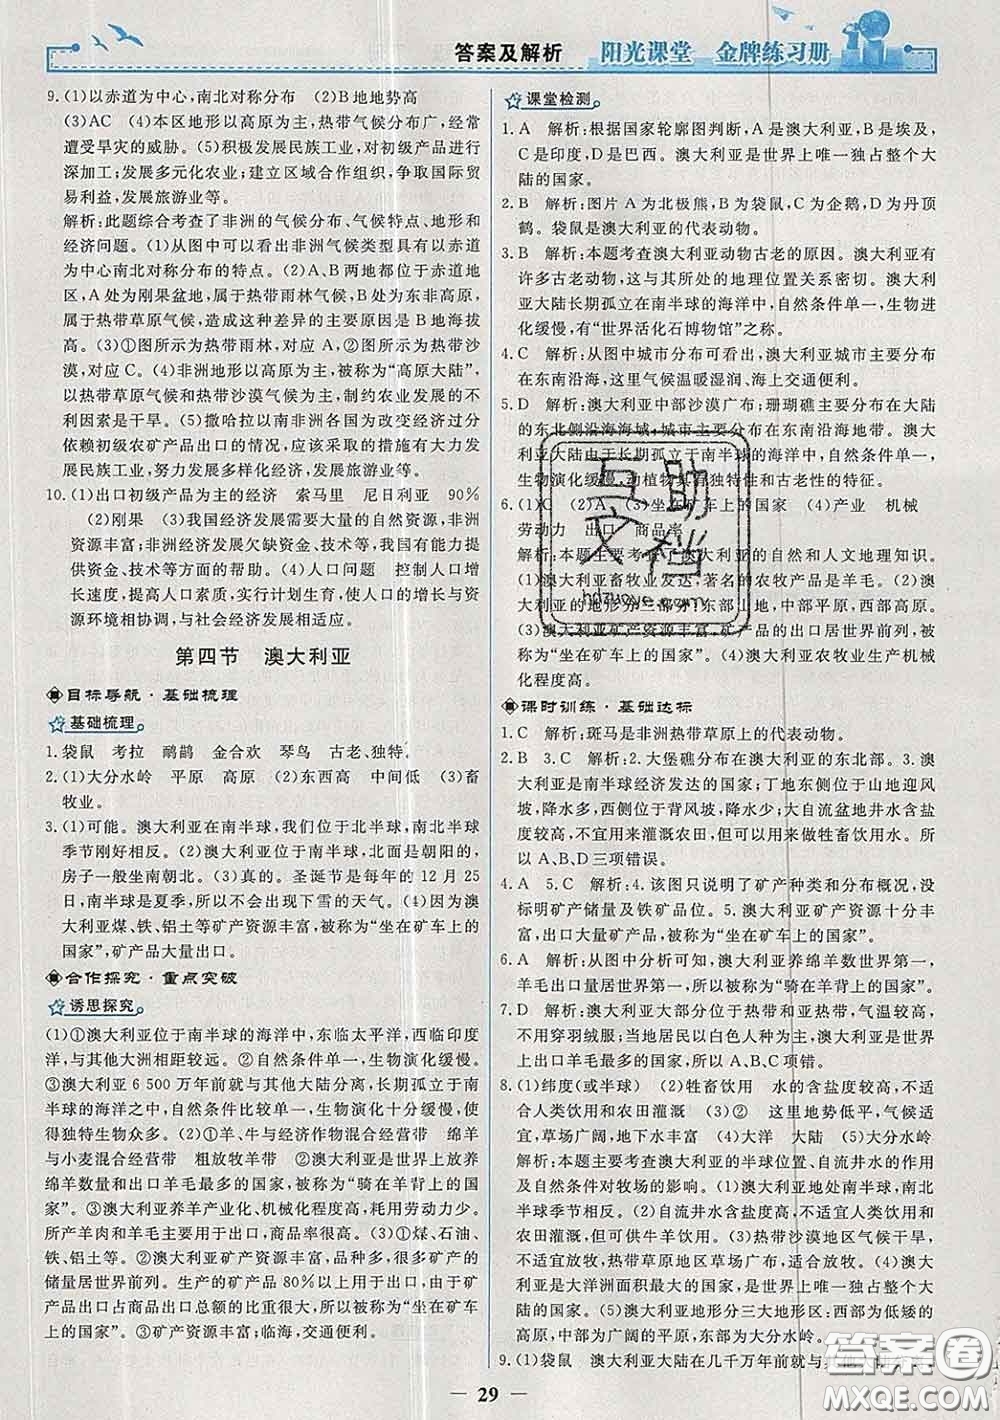 答案及解析
阳光课堂 金牌练习册
9.(1)以赤道为中心,南北对称分布 (2)B地地势高
(3)AC (4)本区地形以高原为主,热带气候分布广,经常
遭受旱灾的威胁。(5)积极发展民族工业,对初级产品进行
深加工;发展多元化农业;建立区域合作组织,争取国际贸
易利益,发展旅游业等。
解析:此题综合考查了非洲的气候分布、气候特点、地形和
经济问题。(1)从图中可以看出非洲气候类型具有以赤道
为中心南北对称分布的特点。(2)A、B两地都位于赤道地
区,A处为刚果盆地,属于热带雨林气候,B处为东非高原,
属于热带草原气候,造成这种差异的主要原因是B地海拔
高。(3)①图所示为热带雨林,对应A,②图所示为热带沙
漠,对应C。(4)非洲地形以高原为主,被称为“高原大陆”,
以热带草原气候和热带沙漠气候为主,制约农业发展的不
利因素是干旱。(5)撒哈拉以南非洲各国为改变经济过分
依赖初级农矿产品出口的情况,应该采取的措施有大力发
展民族工业,努力发展多样化经济,发展旅游业等。
10.(1)出口初级产品为主的经济 索马里 尼日利亚 90%
(2)刚果 (3)我国经济发展需要大量的自然资源,非洲
资源丰富;非洲经济发展欠缺资金、技术等,我国有能力提
供资金、技术等方面的帮助。(4)人口问题 控制人口增
长速度,提高人口素质,实行计划生育,使人口的增长与资
源环境相协调,与社会经济发展相适应。
第四节 澳大利亚
目标导航·基础梳理
基础梳理
1.袋鼠 考拉 鸸鹋 金合欢 琴鸟 古老、独特。
2.(1)大分水岭 平原 高原 (2)东西高 中间低 (3)畜
牧业。
3.(1)可能。澳大利亚在南半球,我们位于北半球,南北半球
季节刚好相反。(2)澳大利亚位于南半球,北面是朝阳的,
房子一般坐南朝北。(3)真的。圣诞节是每年的12月25
日,南半球是夏季,所以不会出现下雪的天气。(4)因为澳
大利亚煤、铁、铝土等矿产资源丰富,被称为“坐在矿车上的
国家”,矿产品大量出口。
合作探究·重点突破
诱思探究
(1)①澳大利亚位于南半球的海洋中,东临太平洋,西临印度
洋,与其他大洲相距较远。②自然条件单一,生物演化缓慢。
③澳大利亚6 500万年前就与其他大陆分离,长期孤立于南半
球的海洋之中,自然条件比较单一,生物演化十分缓慢,使
得独特生物众多。(2)①羊、牛与经济作物混合经营带 绵羊
与小麦混合经营带 粗放牧羊带 ②澳大利亚是世界上放养
绵羊数量和出口羊毛最多的国家,所以被称为“骑在羊背上的
国家”。③澳大利亚养羊产业化、机械化程度高,耗用劳动力少。
所产羊肉和羊毛主要用于出口,商品率很高。(3)①煤、石油、
铁、铝土等。②澳大利亚矿产资源丰富,品种多,很多矿产的
储量居世界前列。生产的矿产品80%以上用于出口,由于矿
产品出口占商品出口总额的比重非常大,所以被称为“坐在矿车
上的国家”。③矿产资源丰富;临海,交通便利。
课堂检测
1.A 解析:根据国家轮廓图判断,A是澳大利亚,B是埃及,
C是印度,D是巴西。澳大利亚是世界上唯一独占整个大
陆的国家。
2.B 解析:图片A为北极熊,B为袋鼠,C为企鹅,D为丹顶
鹤。袋鼠是澳大利亚的代表动物。
3.B 解析:本题考查澳大利亚动物古老的原因。澳大利亚有
许多古老动物,这与其所处的地理位置关系密切。澳大利
亚大陆长期孤立在南半球的海洋中,自然条件单一,生物进
化缓慢,有“世界活化石博物馆”之称。
4.C 解析:从图中城市分布可看出,澳大利亚城市主要分布
在东南沿海,这里气候温暖湿润、海上交通便利。
5.D 解析:澳大利亚中部沙漠广布;珊瑚礁主要分布在大陆
的东北侧沿海海域,城市主要分布在东南沿海地带。澳大
利亚大陆由于长期孤立于南半球的海洋中,自然条件单一,
生物演化缓慢,动植物具有独特性和古老性的特征。
6.(1)C (2)A (3)坐在矿车上的国家 (4)产业 机械
劳动力 出口 商品率
解析:本题主要考查了澳大利亚的自然和人文地理知识。
(1)澳大利亚畜牧业发达,著名的农牧产品是羊毛。(2)澳
大利亚的地形以 分明;东部山地,中部平原,西部高原。
(3)澳大利亚矿产资源丰富,矿产 出口居世界前列,被称
为“坐在矿车上的国家”。(4)澳大利亚农牧业生产机械
化程度高。
课时训练·基础达标
1.C 解析:斑马是非洲热带草原上的代表动物。
2.B 3.C 解析:2.大堡礁分布在澳大利亚的东北部。3.澳
大利亚是南半球经济发达的国家;丁地东侧位于山地迎风
坡,降水多,西侧位于背风坡,降水少;大自流盆地井水含盐
度较高,不宜用来灌溉农田,但可以用做牲畜饮用水。所
以A、B、D三项错误。
4.A 5.C 解析:4.该图只说明了矿产种类和分布概况,没
标明矿产储量及铁矿品位。5.澳大利亚矿产资源十分丰
富,出口大量矿产品,被称为“坐在矿车上的国家”。
6.A 解析:从图中分析可知,澳大利亚养绵羊数世界第一,
羊毛出口量居世界第一,被称为“骑在羊背上的国家”。
7.D 解析:澳大利亚大部分位于热带和亚热带,气温较高,
不用穿羽绒服;当地居民以白色人种为主;澳大利亚是世界
上出口羊毛最多的国家,所以A、B、C项错。
8.(1)纬度(或半球) (2)牲畜饮用 水的含盐度较高,不适
合人类饮用和农田灌溉 (3)② 这里地势低平,气候适
宜,草场广阔,地下水丰富 (4)大洋 大陆 (5)大分水岭
解析:本题主要考查澳大利亚的半球位置、自流井水的作用
及气候对牧场的影响。(1)澳大利亚位于南半球,与北半
球季节相反。(2)自流井水含盐度较高,不适合人类饮用和
农田灌溉,但可供牛羊饮用。(3)热带沙漠地区气候干旱,
不适宜放牧,热带草原地区草场广布,适宜放牧。(4)澳
大利亚是大洋洲面积最大的国家,是世界上唯一独占整个
大陆的国家。(5)澳大利亚地形分三大地形区:西部为低矮的
高原,中部为广阔的平原,东部为大分水岭。
9.(1)袋鼠 澳大利亚大陆在几千万年前就与其
29
互助
文档
hdzuoye.com
答案圈
MXQE.COM